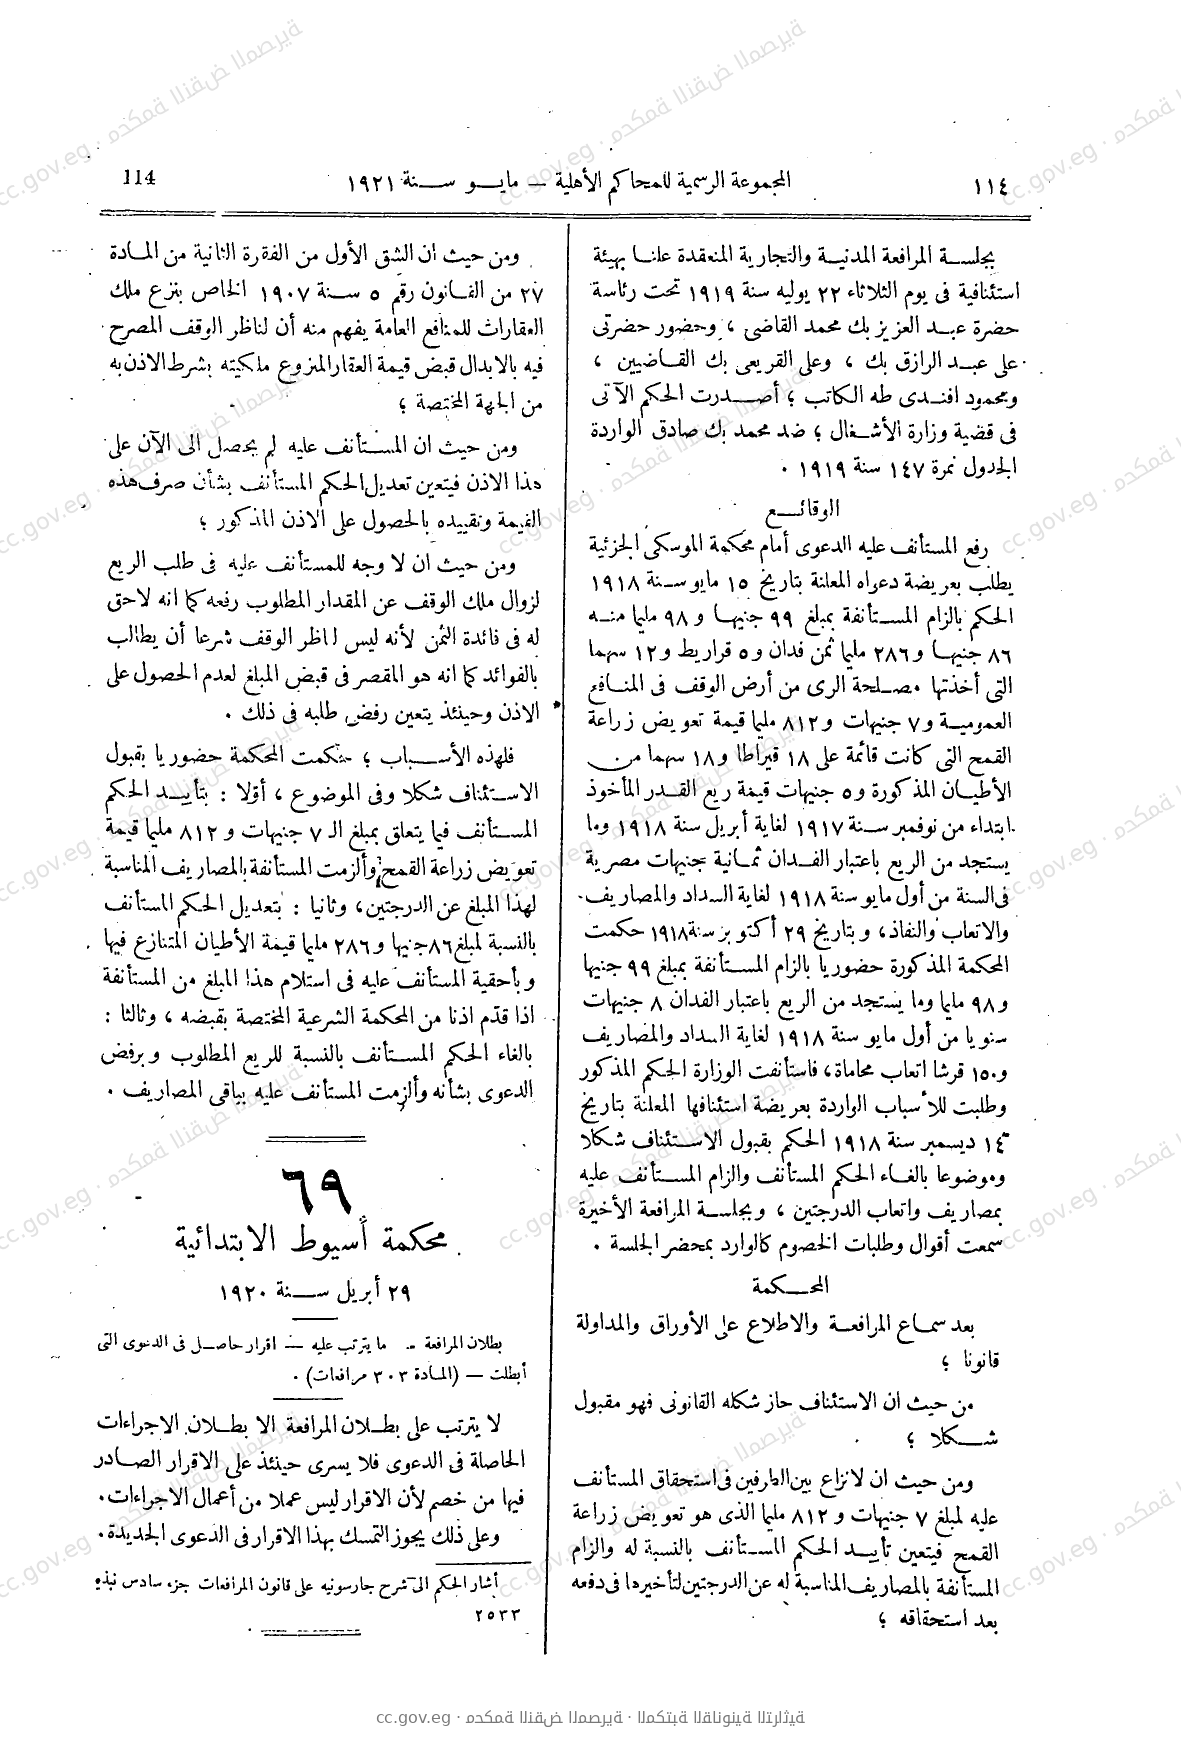 ١١٤
المجموعة الرسمية للمحاكم الأهلية – مايو سنة ١٩٢١
114
بجلسة المرافعة المدنية والتجارية المنعقدة علنا بهيئة
استئنافية فى يوم الثلاثاء ٢٢ يوليه سنة ١٩١٩ تحت رئاسة
حضرة عبد العزيز بك محمد القاضى ، وحضور حضرتى
على عبد الرازق بك ، وعلى القريعى بك القاضيين ،
ومحمود افندى طه الكاتب ؛ أصدرت الحكم الآتى
فى قضية وزارة الأشغال ؛ ضد محمد بك صادق الواردة
الجدول نمرة ١٤٧ سنة ١٩١٩ .
الوقائع
رفع المستأنف عليه الدعوى أمام محكمة الموسكى الجزئية
يطلب بعريضة دعواه المعلنة بتاريخ ١٥ مايو سنة ١٩١٨
الحكم بالزام المستأنفة بمبلغ ٩٩ جنيها و ٩٨ مليما منه
٨٦ جنيها و٢٨٦ مليما ثمن فدان و٥ قراريط و١٢ سهما
التى أخذتها مصلحة الرى من أرض الوقف فى المنافع
العمومية و٧ جنيهات و٨١٢ مليما قيمة تعويض زراعة
القمح التى كانت قائمة على ١٨ قيراطا و١٨ سهما من
الأطيان المذكورة و٥ جنيهات قيمة ريع القدر المأخوذ
ابتداء من نوفمبر سنة ١٩١٧ لغاية أبريل سنة ١٩١٨ وما
يستجد من الريع باعتبار الفدان ثمانية جنيهات مصرية
فى السنة من أول مايو سنة ١٩١٨ لغاية السداد والمصاريف
والاتعاب والنفاذ، وبتاريخ ٢٩ أكتوبر سنة ١٩١٨ حكمت
المحكمة المذكورة حضوريا بالزام المستأنفة بمبلغ ٩٩ جنيها
و٩٨ مليما وما يستجد من الريع باعتبار الفدان ٨ جنيهات
سنويا من أول مايو سنة ١٩١٨ لغاية السداد والمصاريف
و١٥٠ قرشا اتعاب محاماة، فاستأنفت الوزارة الحكم المذكور
وطلبت للأسباب الواردة بعريضة استئنافها المعلنة بتاريخ
١٤ ديسمبر سنة ١٩١٨ الحكم بقبول الاستئناف شكلا
وموضوعا بالغاء الحكم المستأنف والزام المستأنف عليه
بمصاريف واتعاب الدرجتين ، وبجلسة المرافعة الأخيرة
سمعت أقوال وطلبات الخصوم كالوارد بمحضر الجلسة .
المحكمة
بعد سماع المرافعة والاطلاع على الأوراق والمداولة
قانونا ؛
من حيث ان الاستئناف حاز شكله القانونى فهو مقبول
شكلا ؛
ومن حيث ان لا نزاع بين الطرفين فى استحقاق المستأنف
عليه لمبلغ ٧ جنيهات و ٨١٢ مليما الذى هو تعويض زراعة
القمح فيتعين تأييد الحكم المستأنف بالنسبة له والزام
المستأنفة بالمصاريف المناسبة له عن الدرجتين لتأخيرها فى دفعه
بعد استحقاقه ؛
ومن حيث ان الشق الأول من الفقرة الثانية من المادة
٢٧ من القانون رقم ٥ سنة ١٩٠٧ الخاص بنزع ملك
العقارات للمنافع العامة يفهم منه أن لناظر الوقف المصرح
فيه بالابدال قبض قيمة العقار المنزوع ملكيته بشرط الاذن به
من الجهة المختصة ؛
ومن حيث ان المستأنف عليه لم يحصل الى الآن على
هذا الاذن فيتعين تعديل الحكم المستأنف بشأن صرف هذه
القيمة وتقييده بالحصول على الاذن المذكور ؛
ومن حيث ان لا وجه للمستأنف عليه فى طلب الريع
لزوال ملك الوقف عن المقدار المطلوب رفعه كما انه لاحق
له فى فائدة الثمن لأنه ليس لناظر الوقف شرعا أن يطالب
بالفوائد كما انه هو المقصر فى قبض المبلغ لعدم الحصول على
الاذن وحينئذ يتعين رفض طلبه فى ذلك .
فلهذه الأسباب ؛ حكمت المحكمة حضوريا بقبول
الاستئناف شكلا وفى الموضوع ، أوّلا : بتأييد الحكم
المستأنف فيما يتعلق بمبلغ الـ ٧ جنيهات و ٨١٢ مليما قيمة
تعويض زراعة القمح وألزمت المستأنفة بالمصاريف المناسبة
لهذا المبلغ عن الدرجتين، وثانيا : بتعديل الحكم المستأنف
بالنسبة لمبلغ ٨٦ جنيها و٢٨٦ مليما قيمة الأطيان المتنازع فيها
وبأحقية المستأنف عليه فى استلام هذا المبلغ من المستأنفة
اذا قدّم اذنا من المحكمة الشرعية المختصة بقبضه ، وثالثا :
بالغاء الحكم المستأنف بالنسبة للريع المطلوب وبرفض
الدعوى بشأنه وألزمت المستأنف عليه بباقى المصاريف .
٦٩
محكمة أسيوط الابتدائية
٢٩ أبريل سنة ١٩٢٠
بطلان المرافعة – ما يترتب عليه – اقرار حاصل فى الدعوى التى
أبطلت – (المادة ٣٠٣ مرافعات) .
لا يترتب على بطلان المرافعة الا بطلان الاجراءات
الحاصلة فى الدعوى فلا يسرى حينئذ على الاقرار الصادر
فيها من خصم لأن الاقرار ليس عملا من أعمال الاجراءات.
وعلى ذلك يجوز التمسك بهذا الاقرار فى الدعوى الجديدة.
أشار الحكم الى شرح جارسونيه على قانون المرافعات جزء سادس نبذة
٢٥٣٣
cc.gov.eg · محكمة النقض المصرية · المكتبة القانونية التراثية